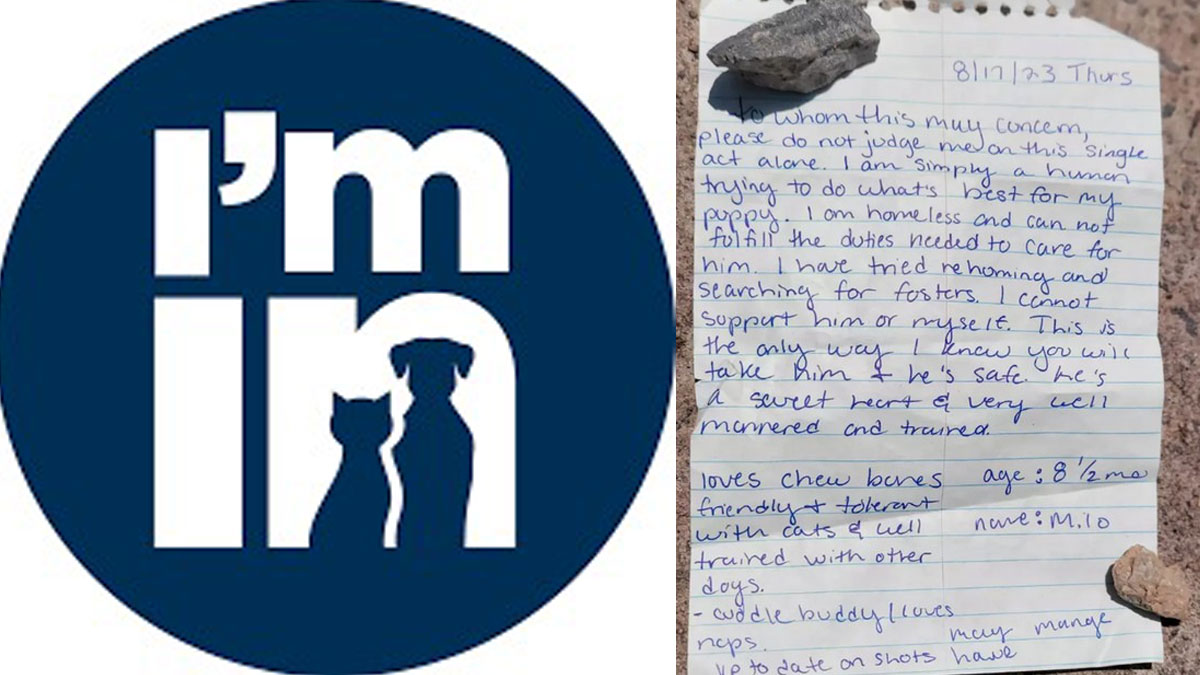 I'm
in
8/17/23 Thurs
to whom this may concern,
please do not judge me on this single
act alone. I am simply a human
trying to do what's best for my
puppy. I am homeless and can not
fulfill the duties needed to care for
him. I have tried rehoming and
searching for fosters. I cannot
support him or myself. This is
the only way I know you will
take him & he's safe. he's
a sweet heart & very well
mannered and trained.
loves chew bones age: 8 1/2 mo
friendly & tolerant
with cats & well name: M.lo
trained with other
dogs.
- cuddle buddy/loves
naps. may mange
up to date on shots have